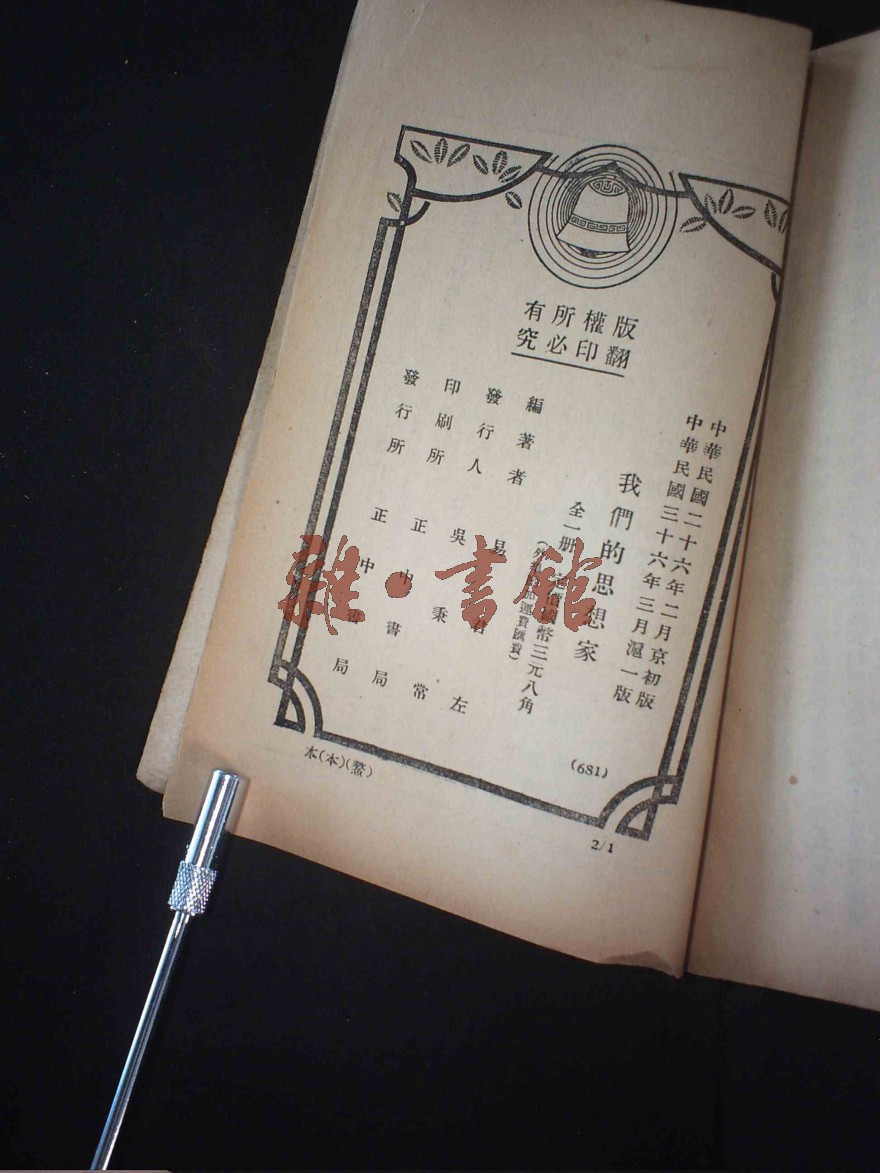 版權所有
翻印必究
中華民國二十六年二月京初版
中華民國三十六年三月滬一版
我們的思想家
全一册 定價國幣三元八角
(外埠酌加運費匯費)
編著者 易君左
發行人 吳秉常
印刷所 正中書局
發行所 正中書局
(681)
本(本)(鰲)
2/1
雜·書館